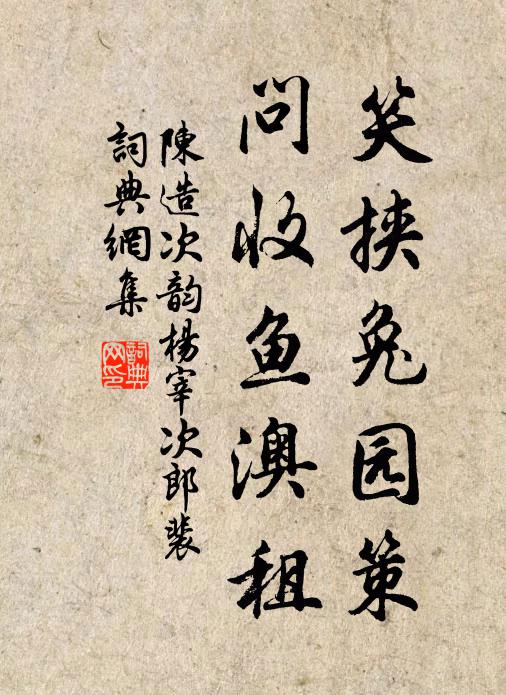 笑挾兔园策
问收鱼澳租
陳造次韵楊宰次郎裴
詞典網集
詞典网印